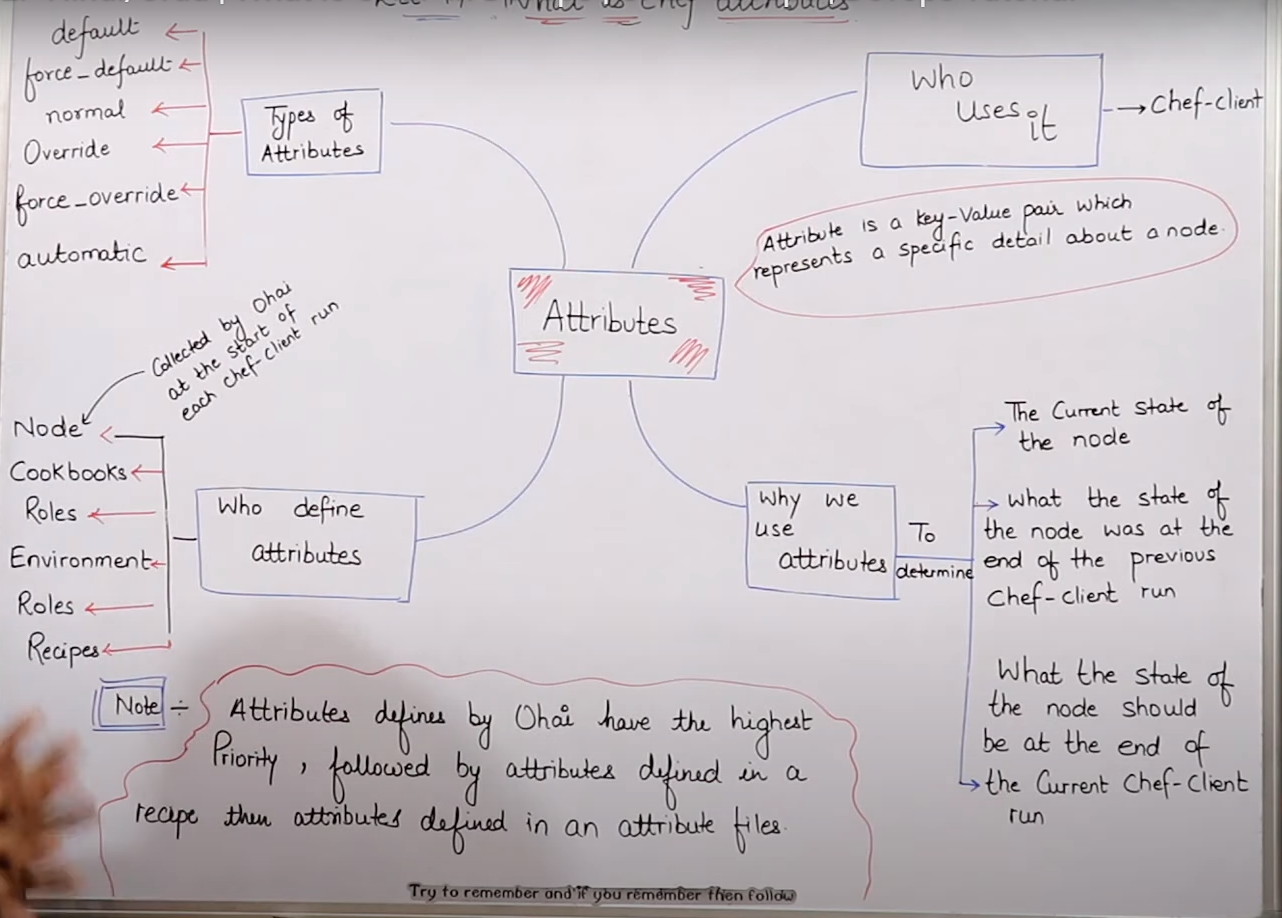 What is Chef attributes
default
force_default
normal
Override
force_override
automatic
Types of
Attributes
Who
Uses it
→ Chef-client
Attribute is a key-Value pair which
represents a specific detail about a node.
Attributes
Collected by Ohai
at the start of
each chef-client run
Node
Cookbooks
Roles
Environment
Roles
Recipes
Who define
attributes
Why we
use
attributes
To
determine
The Current state of
the node
what the state of
the node was at the
end of the previous
Chef-client run
What the state of
the node should
be at the end of
the Current Chef-Client
run
Note ÷
Attributes defines by Ohai have the highest
Priority, followed by attributes defined in a
recipe then attributes defined in an attribute files.
Try to remember and if you remember then follow